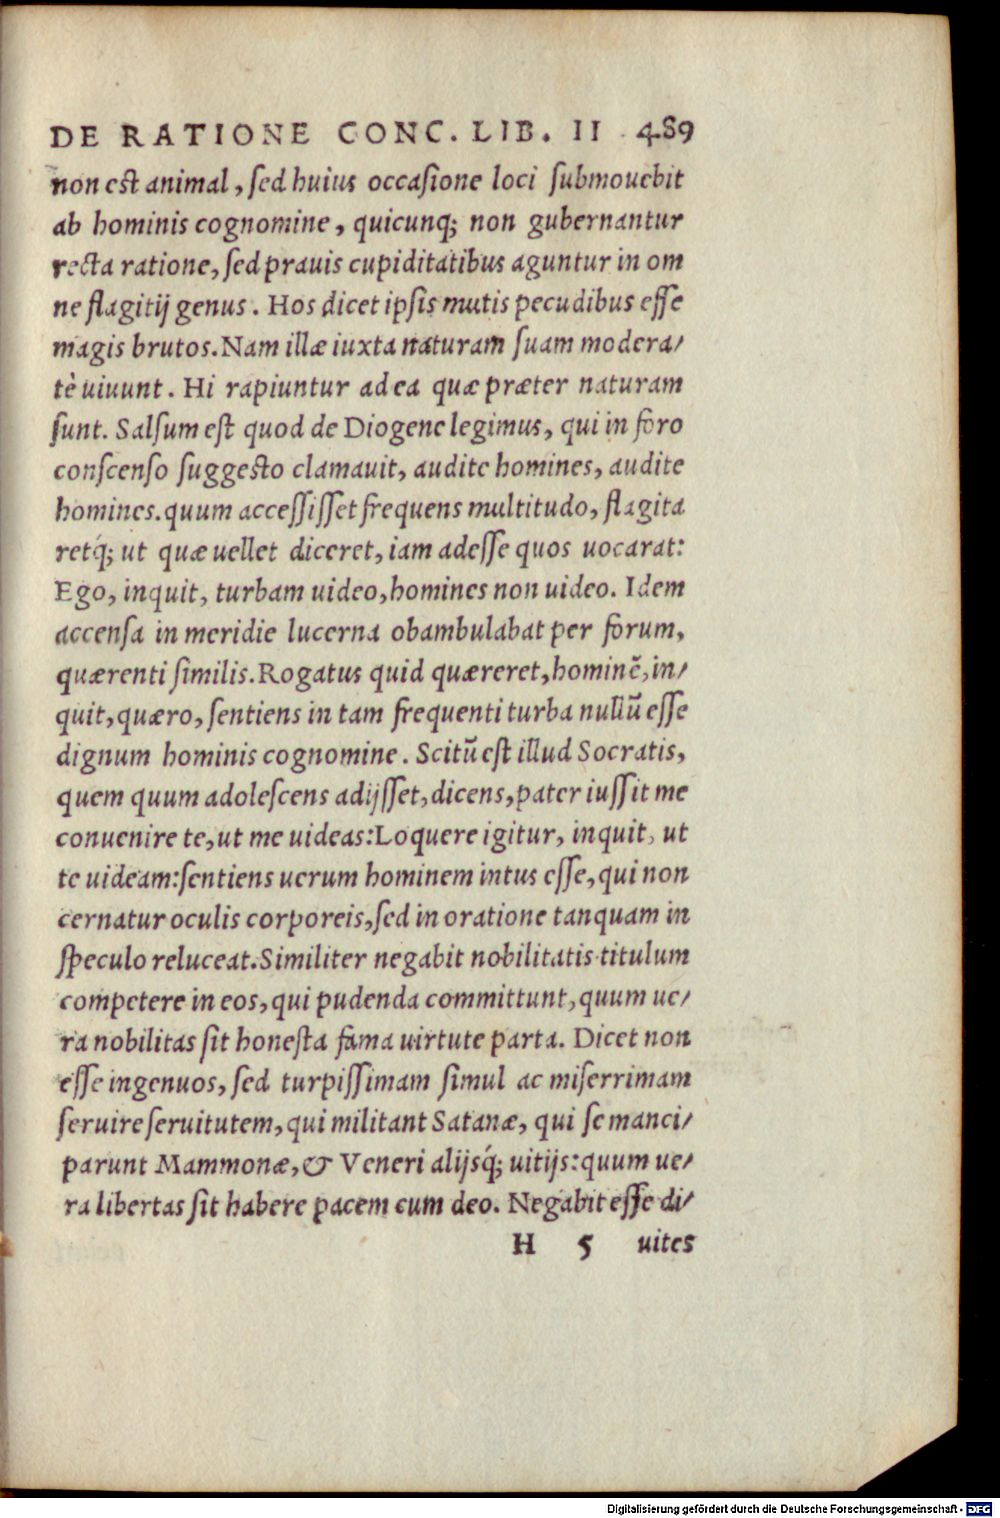 DE RATIONE CONC. LIB. II 489
non est animal, sed huius occasione loci submouebit
ab hominis cognomine, quicunq; non gubernantur
recta ratione, sed prauis cupiditatibus aguntur in om
ne flagitij genus. Hos dicet ipsis mutis pecudibus esse
magis brutos. Nam illæ iuxta naturam suam modera/
tè uiuunt. Hi rapiuntur ad ea quæ præter naturam
sunt. Salsum est quod de Diogene legimus, qui in foro
conscenso suggesto clamauit, audite homines, audite
homines. quum accessisset frequens multitudo, flagita
retq́; ut quæ uellet diceret, iam adesse quos uocarat:
Ego, inquit, turbam uideo, homines non uideo. Idem
accensa in meridie lucerna obambulabat per forum,
quærenti similis. Rogatus quid quæreret, hominẽ, in/
quit, quæro, sentiens in tam frequenti turba nullũ esse
dignum hominis cognomine. Scitũ est illud Socratis,
quem quum adolescens adijsset, dicens, pater iussit me
conuenire te, ut me uideas: Loquere igitur, inquit, ut
te uideam: sentiens uerum hominem intus esse, qui non
cernatur oculis corporeis, sed in oratione tanquam in
speculo reluceat. Similiter negabit nobilitatis titulum
competere in eos, qui pudenda committunt, quum ue/
ra nobilitas sit honesta fama uirtute parta. Dicet non
esse ingenuos, sed turpissimam simul ac miserrimam
seruire seruitutem, qui militant Satanæ, qui se manci/
parunt Mammonæ, & Veneri alijsq́; uitijs: quum ue/
ra libertas sit habere pacem cum deo. Negabit esse di/
H 5 uites
Digitalisierung gefördert durch die Deutsche Forschungsgemeinschaft - DFG